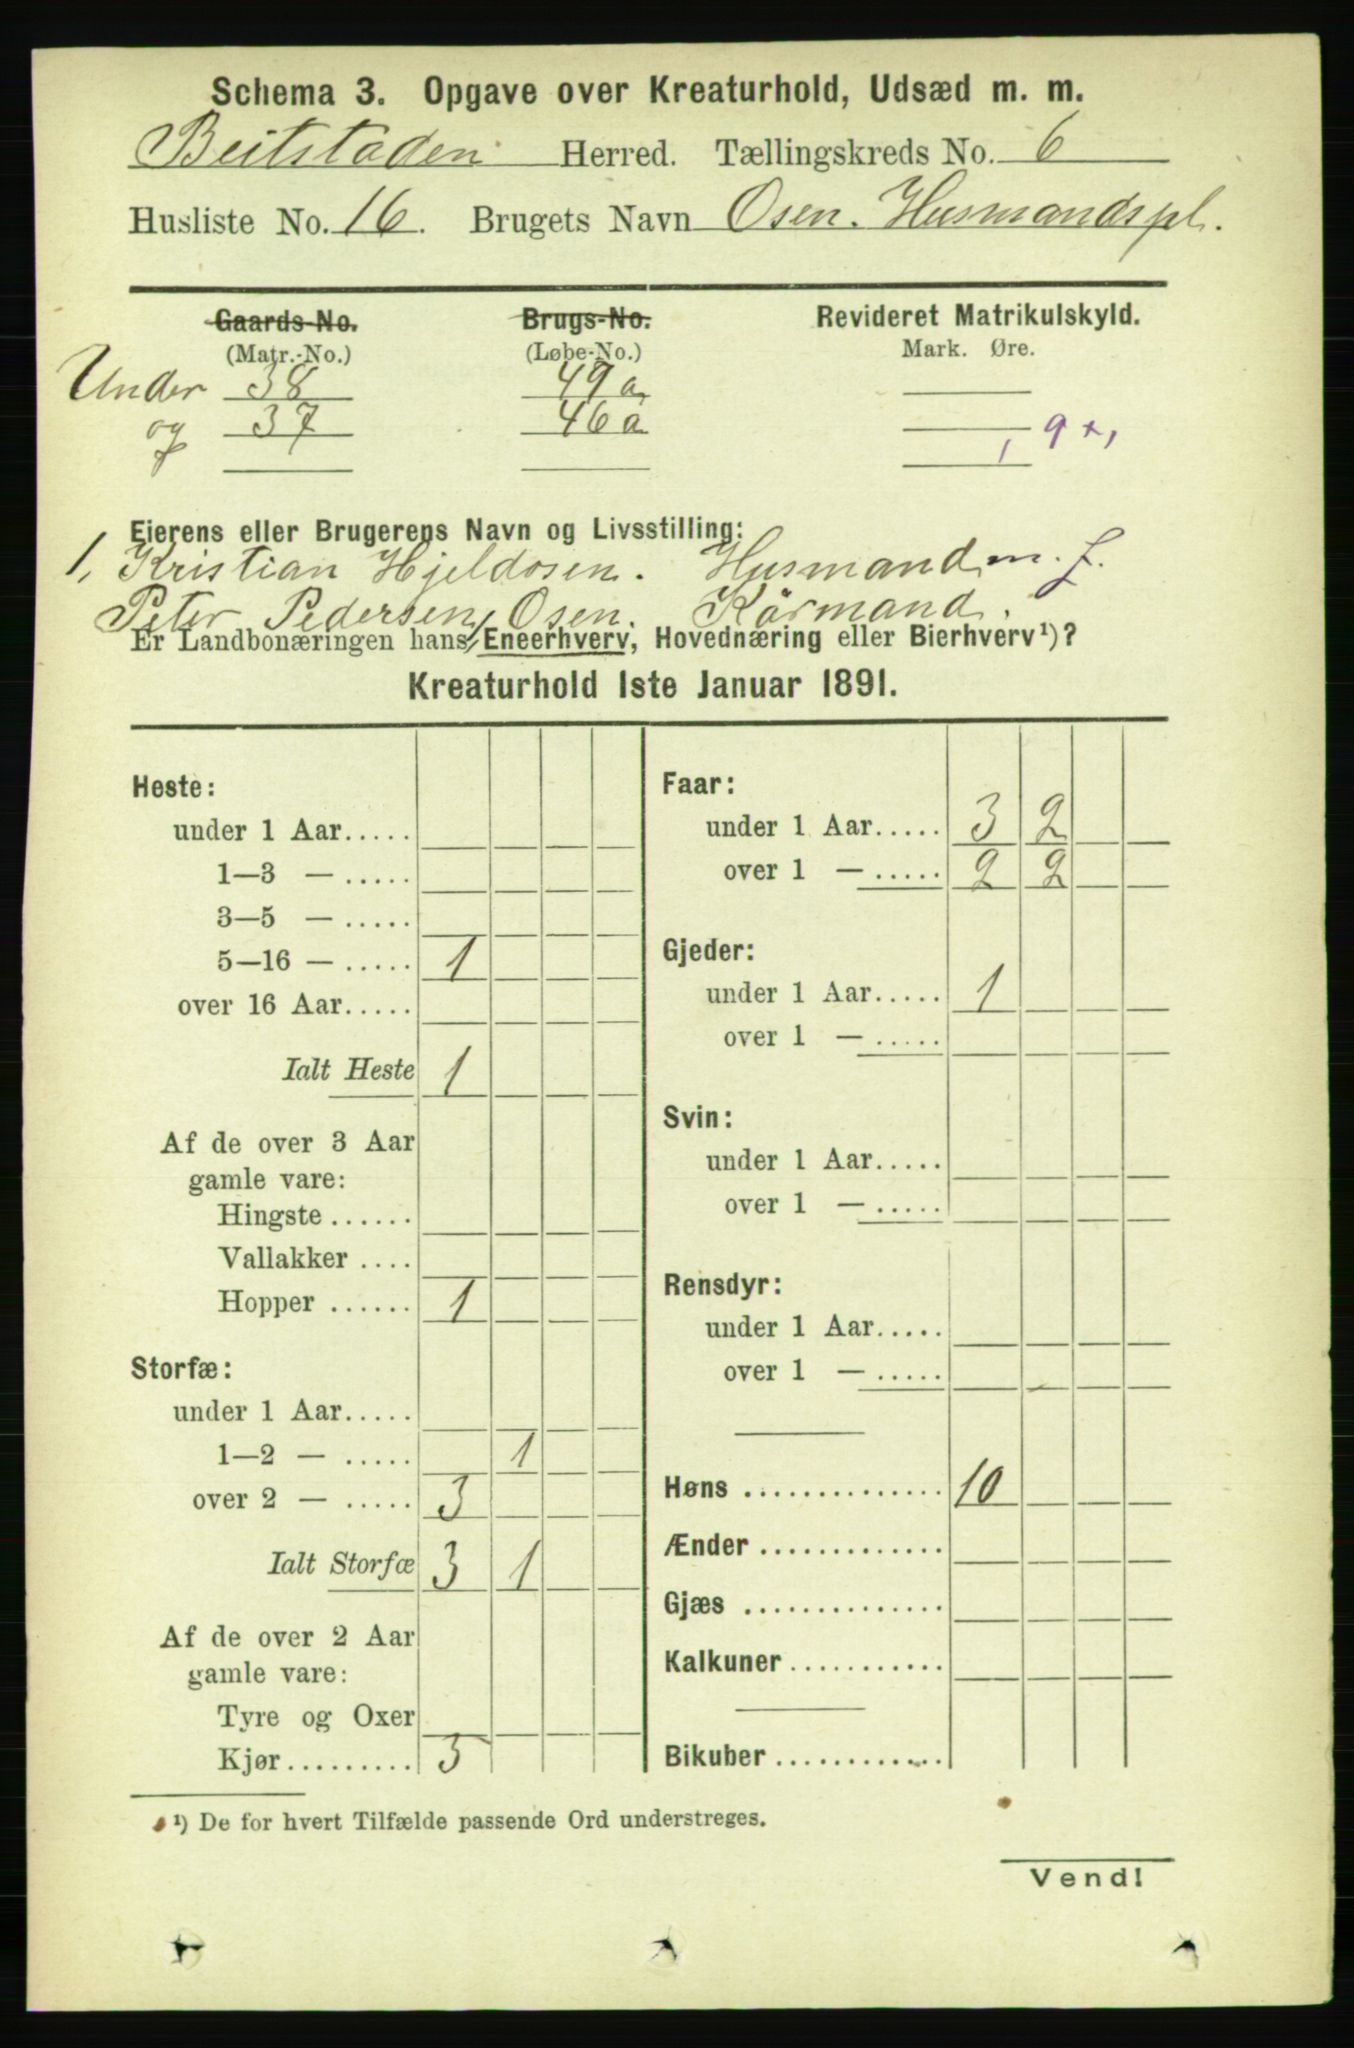 Schema 3. Opgave over Kreaturhold, Udsæd m. m.
Beitstaden Herred. Tællingskreds No. 6
Husliste No. 16. Brugets Navn Osen. Husmandspl.
Gaards-No. Brugs-No. Revideret Matrikulskyld.
(Matr.-No.) (Løbe-No.) Mark. Øre.
Under 38 49 a
og 37 46 a
, 9 +,
Eierens eller Brugerens Navn og Livsstilling:
1, Kristian Hjeldosen. Husmand m. J.
Peter Pedersen, Osen. Kårmand.
Er Landbonæringen hans Eneerhverv, Hovednæring eller Bierhverv¹)?
Kreaturhold 1ste Januar 1891.
Heste:
under 1 Aar.....
1—3 — .....
3—5 — .....
5—16 — ..... 1
over 16 Aar.....
Ialt Heste 1
Af de over 3 Aar
gamle vare:
Hingste ......
Vallakker ....
Hopper ...... 1
Storfæ:
under 1 Aar.....
1—2 — ..... 1
over 2 — ..... 3
Ialt Storfæ 3 1
Af de over 2 Aar
gamle vare:
Tyre og Oxer
Kjør......... 3
Faar:
under 1 Aar..... 3 2
over 1 — ..... 2 2
Gjeder:
under 1 Aar..... 1
over 1 — .....
Svin:
under 1 Aar.....
over 1 — .....
Rensdyr:
under 1 Aar.....
over 1 — .....
Høns .............. 10
Ænder .............
Gjæs ..............
Kalkuner ...........
Bikuber ............
¹) De for hvert Tilfælde passende Ord understreges.
Vend!